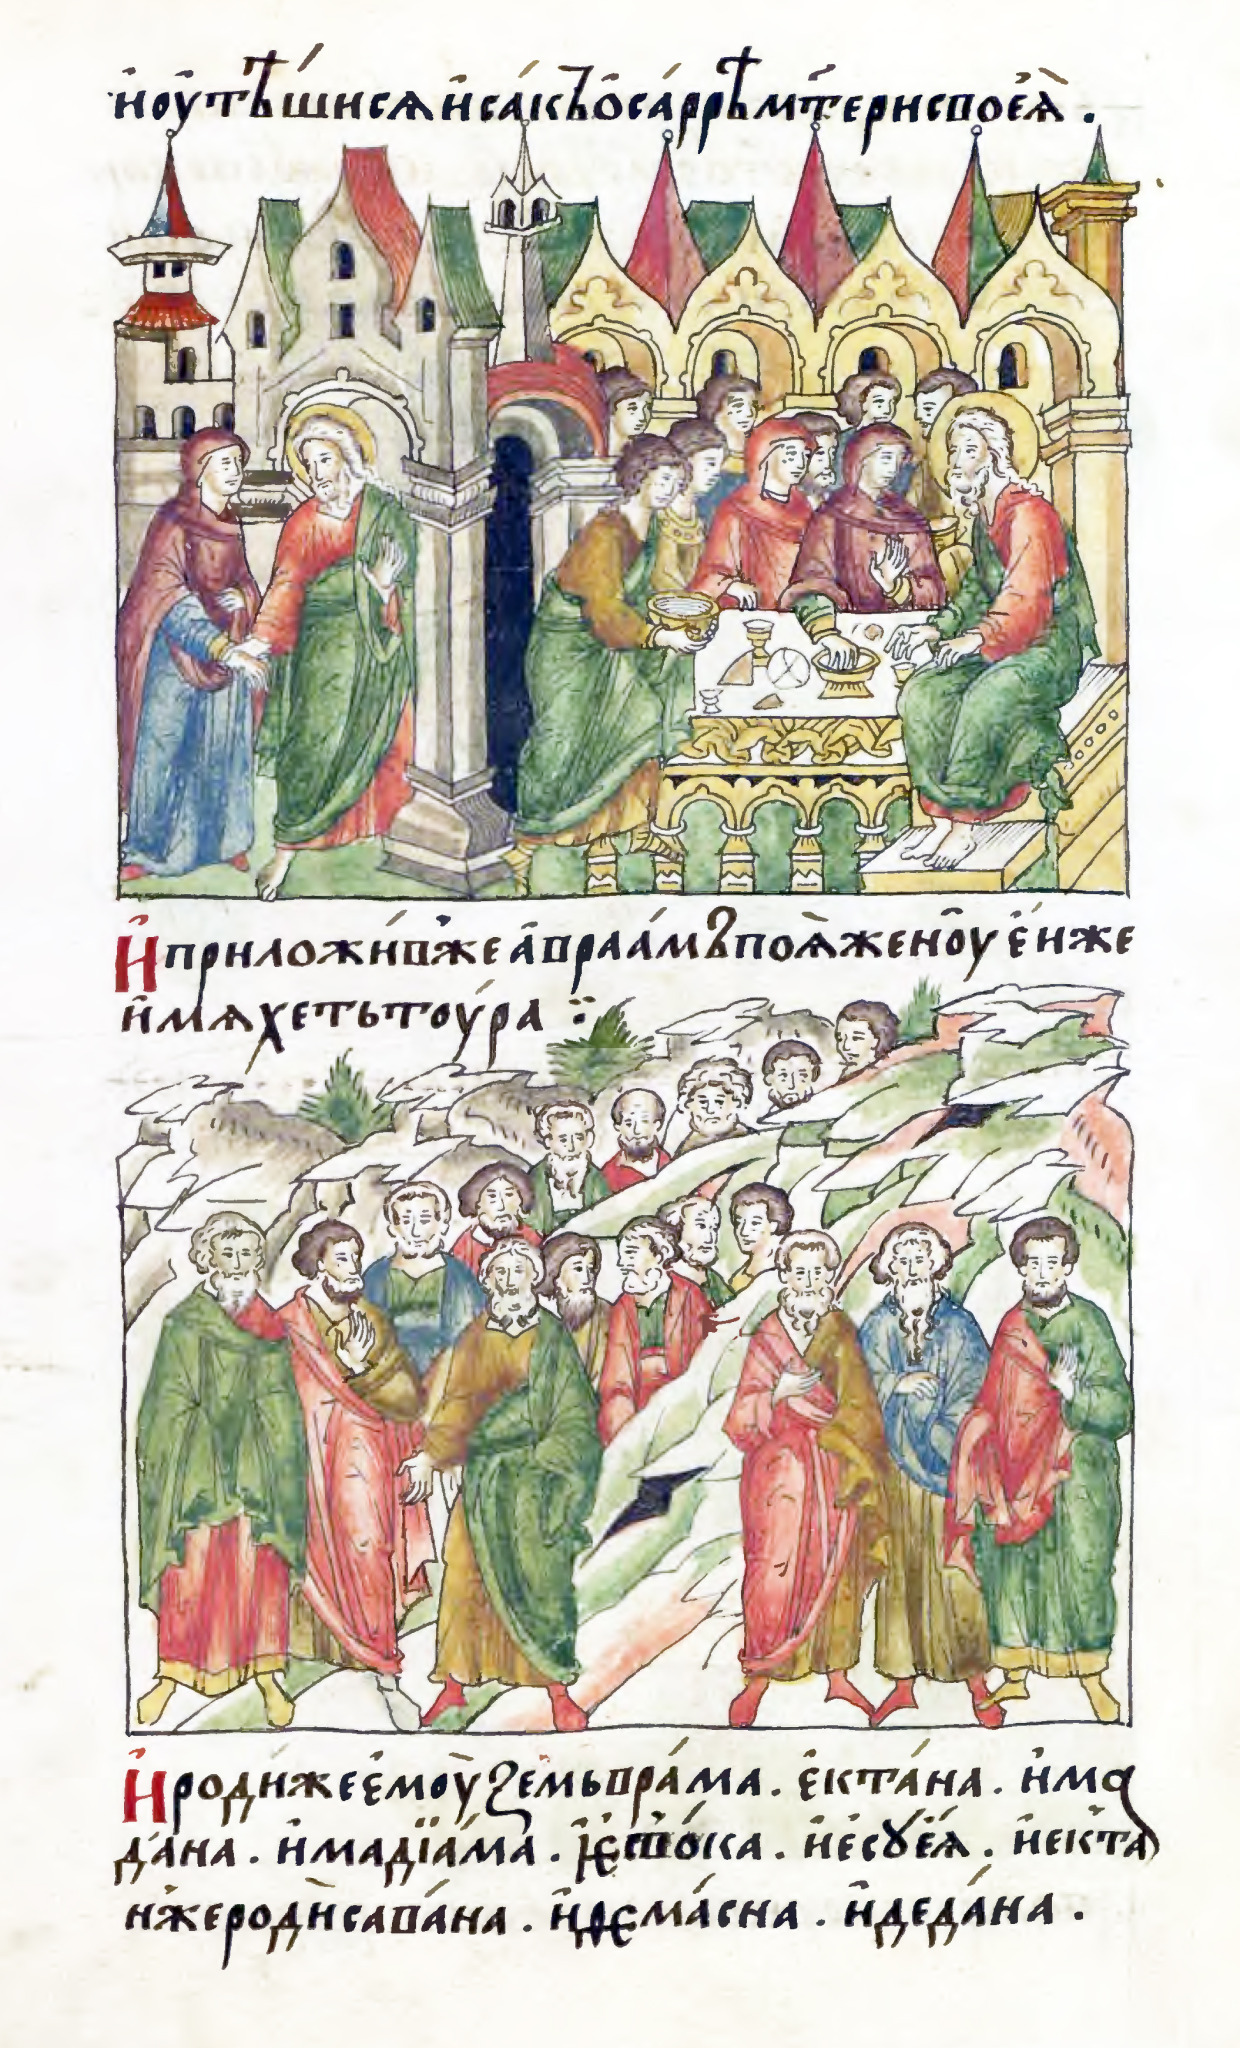 и҆ѹ҆тѣ́шисѧ и҆са́къ ѡ҆ са́ррѣ мт҃ери свое҆ѧ̀.
И҆ приложи́вже а҆враа́мъ поѧ̀ женѹ̀ є҆йже
и҆мѧ хеттѹ́ра :
И҆ роди́же є҆мѹ̀ земьвра́ма. є҆кта́на. и҆ма
да́на. и҆мадїа́ма. и҆ є҆сво́ка. и҆ е҆сꙋ́е҆ѧ. и҆ е҆кта
н̾же роди̾ сава́на. и҆ ма́сна. и҆ деда́на.